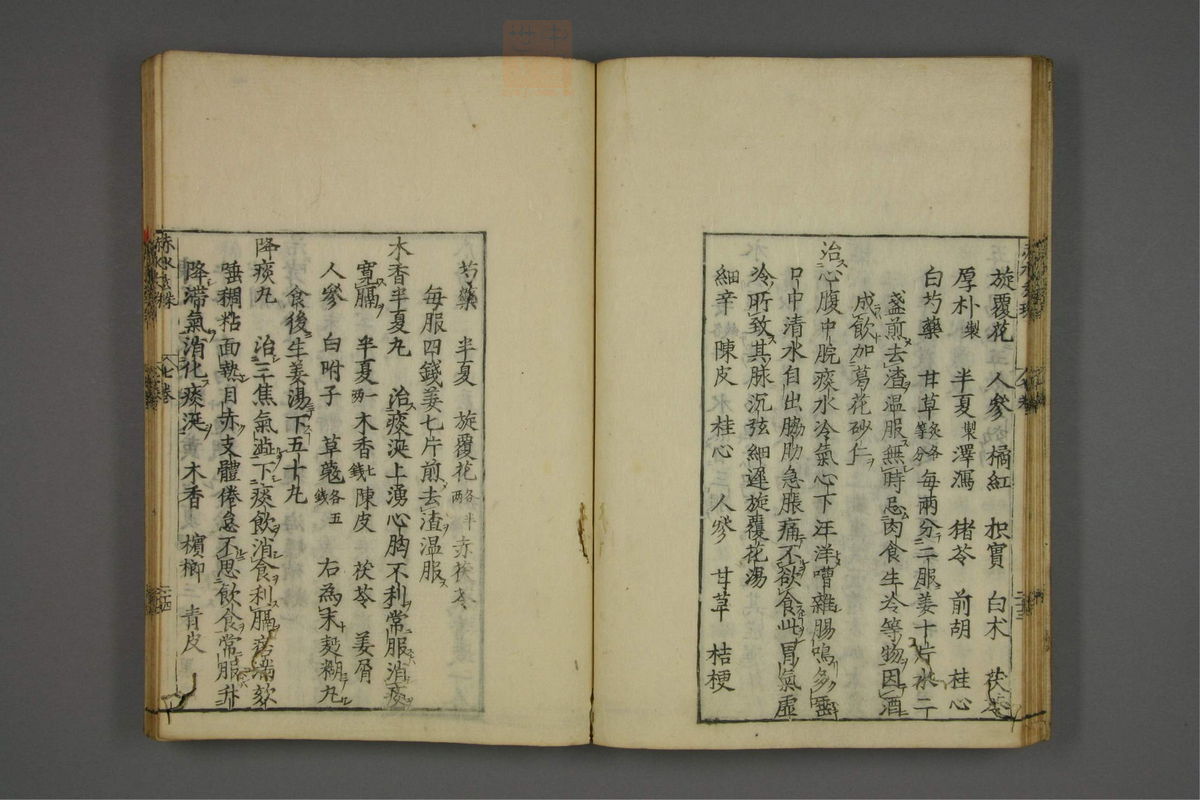 旋覆花 人參 橘紅 枳實 白朮 茯苓
厚朴製 半夏製 澤瀉 猪苓 前胡 桂心
白芍藥 甘草炙各等分 每兩分二服姜十片水二
盞煎去渣温服無時忌肉食生冷等物因酒
成飲加葛花砂仁
治心腹中脘痰水冷氣心下汪洋嘈雜腸鳴多
口中清水自出脇肋急脹痛不欲食此胃氣虚
冷所致其脉沉弦細遲旋覆花湯
細辛 陳皮 桂心 人參 甘草 桔梗
芍藥 半夏 旋覆花各半兩 赤茯苓
每服四錢姜七片煎去渣温服
木香半夏丸 治痰涎上湧心胸不利常服消痰
寛膈 半夏一兩 木香七錢 陳皮 茯苓 姜屑
人參 白附子 草蔲各五錢 右為末麪糊丸
食後生姜湯下五十丸
降痰丸 治三焦氣澁下痰飲消食利膈痞滿欬
唾稠粘面熱目赤支體倦怠不思飲食常服升
降滞氣消化痰涎 木香 檳榔 青皮
七卷
二十四